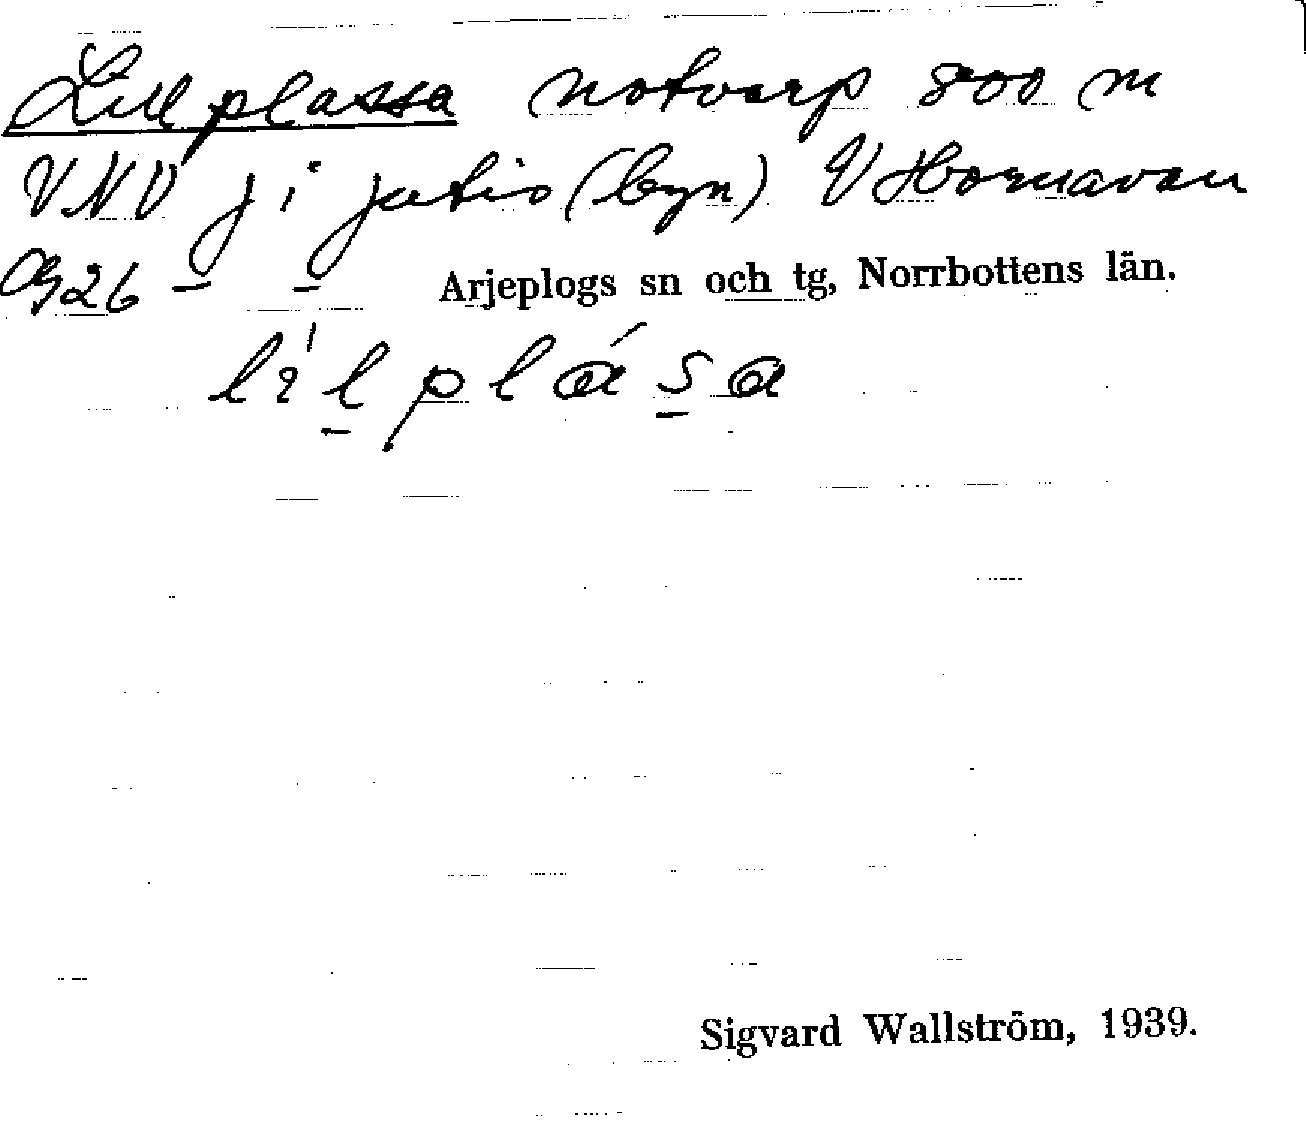 Lillplassa notvarp 800 m
VNV j i jutis (byn) V Hornavan
G26 Arjeplogs sn och tg, Norrbottens län.
lilplása
Sigvard Wallström, 1939.